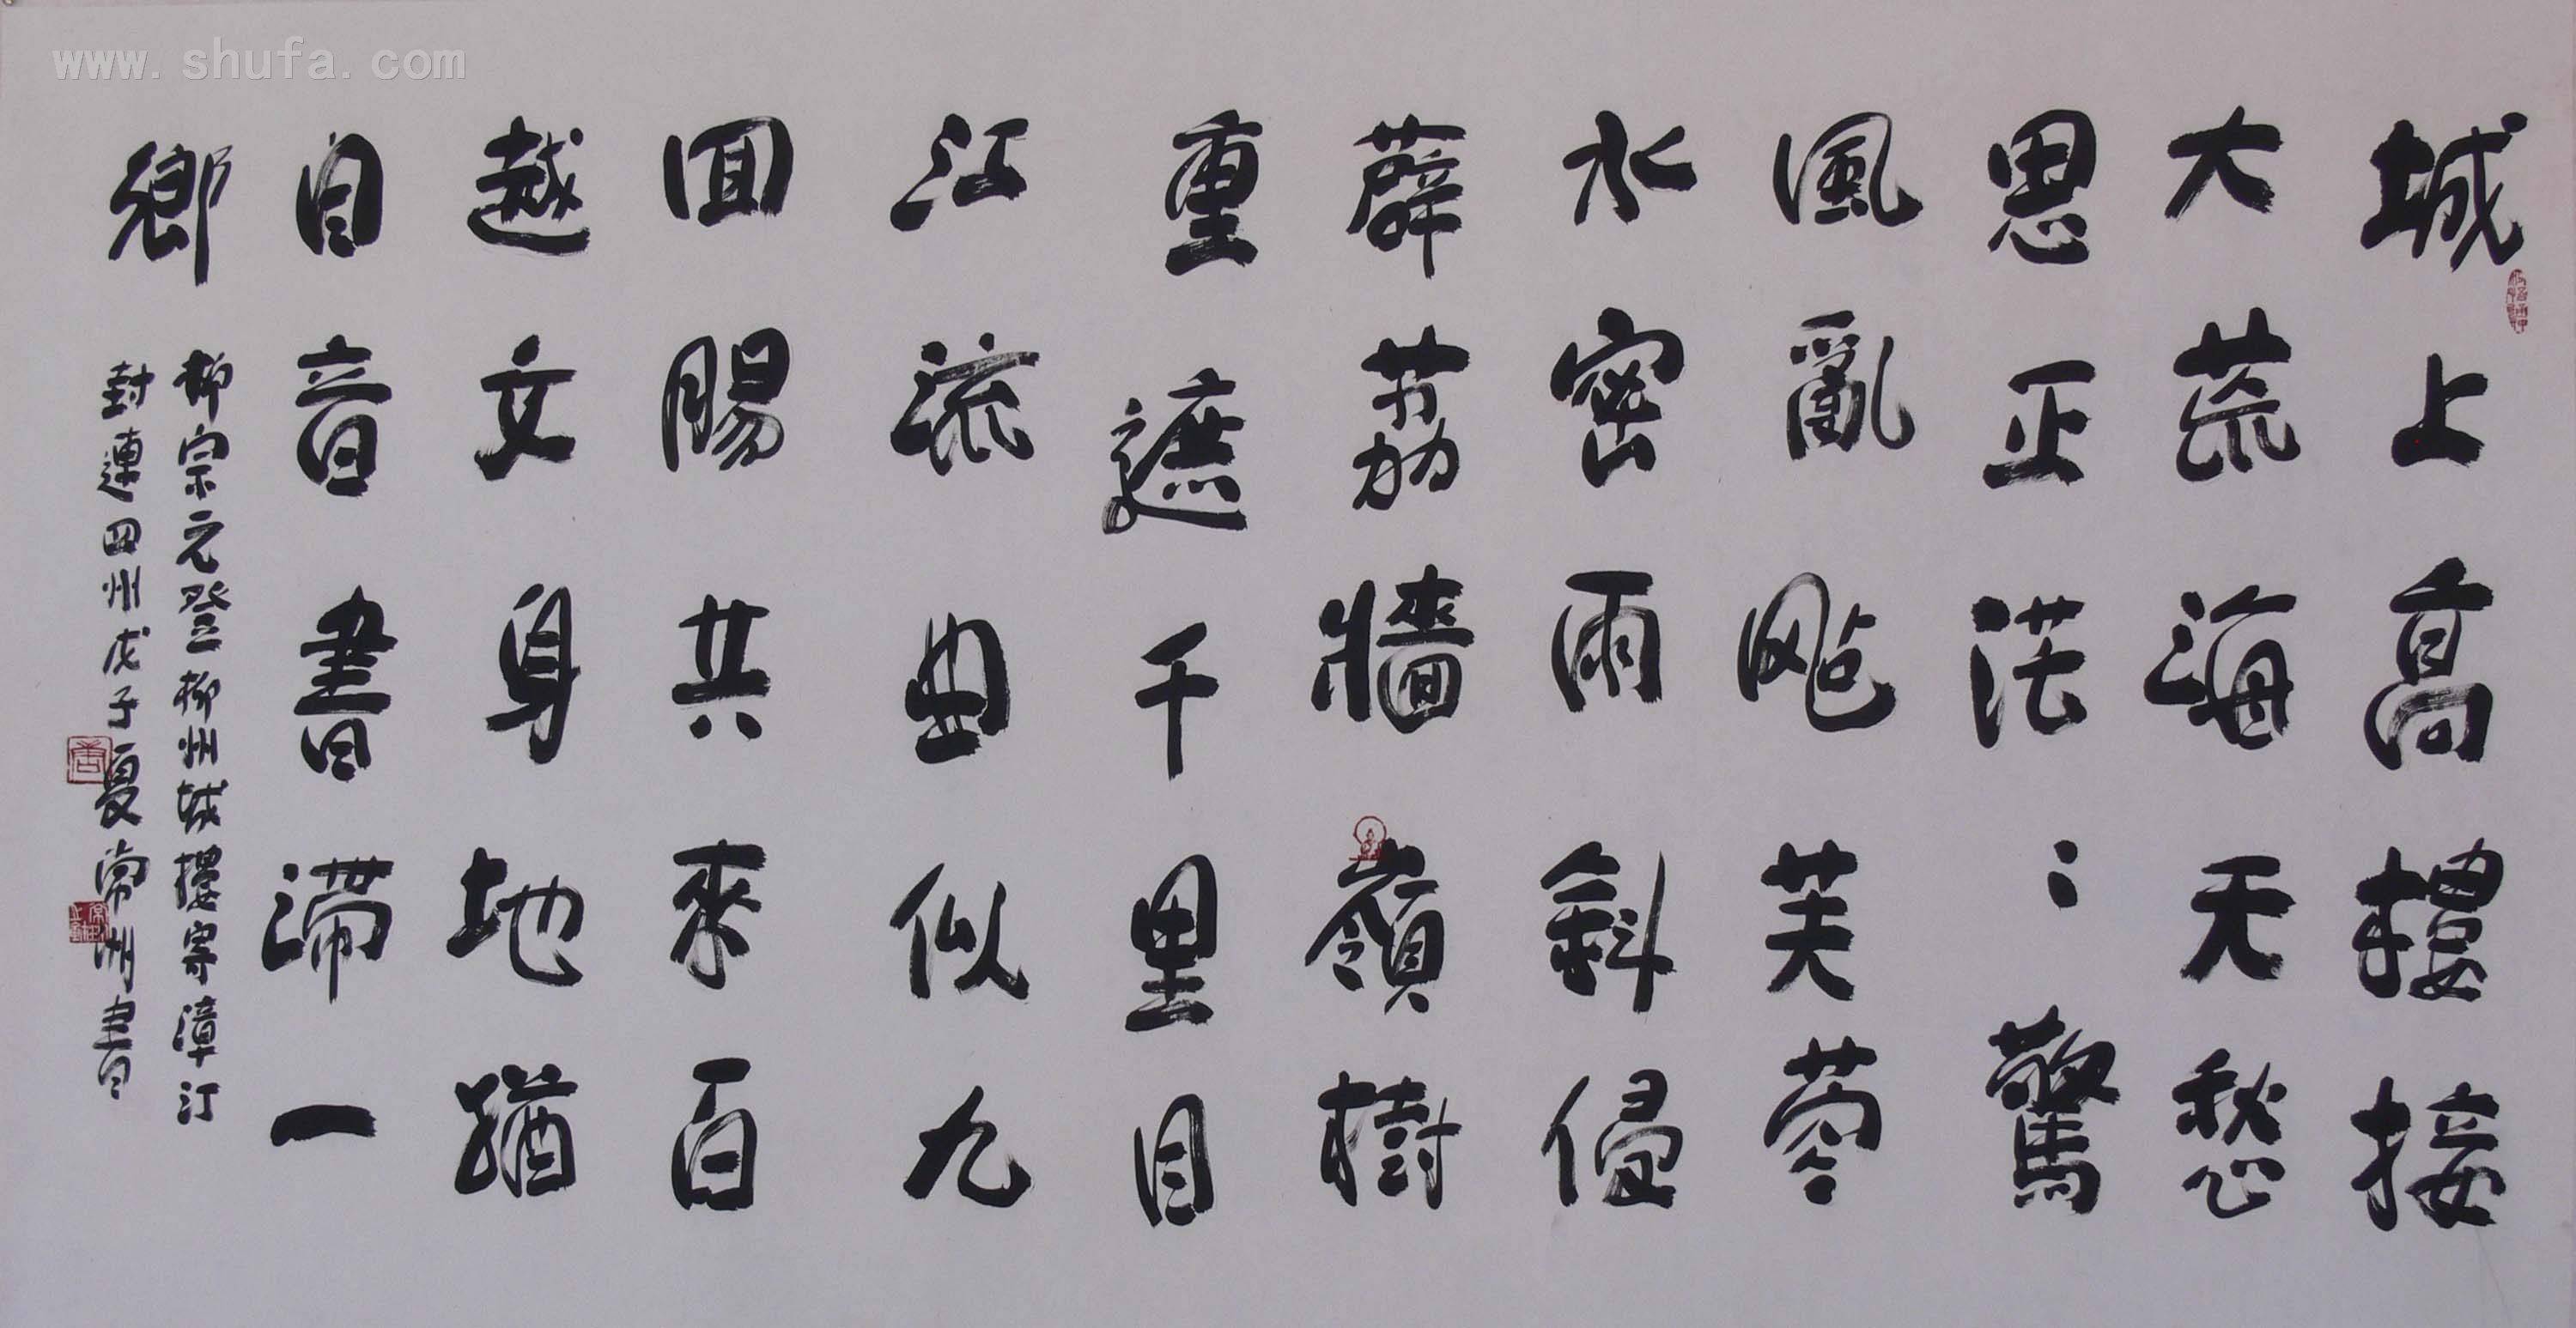 城上高樓接
大荒海天愁
思正茫〻驚
風亂颭芙蓉
水密雨斜侵
薜荔牆嶺樹
重遮千里目
江流曲似九
回腸共來百
越文身地猶
自音書滯一
鄉
柳宗元登柳州城樓寄漳汀
封連四州戊子夏常州書
www.shufa.com